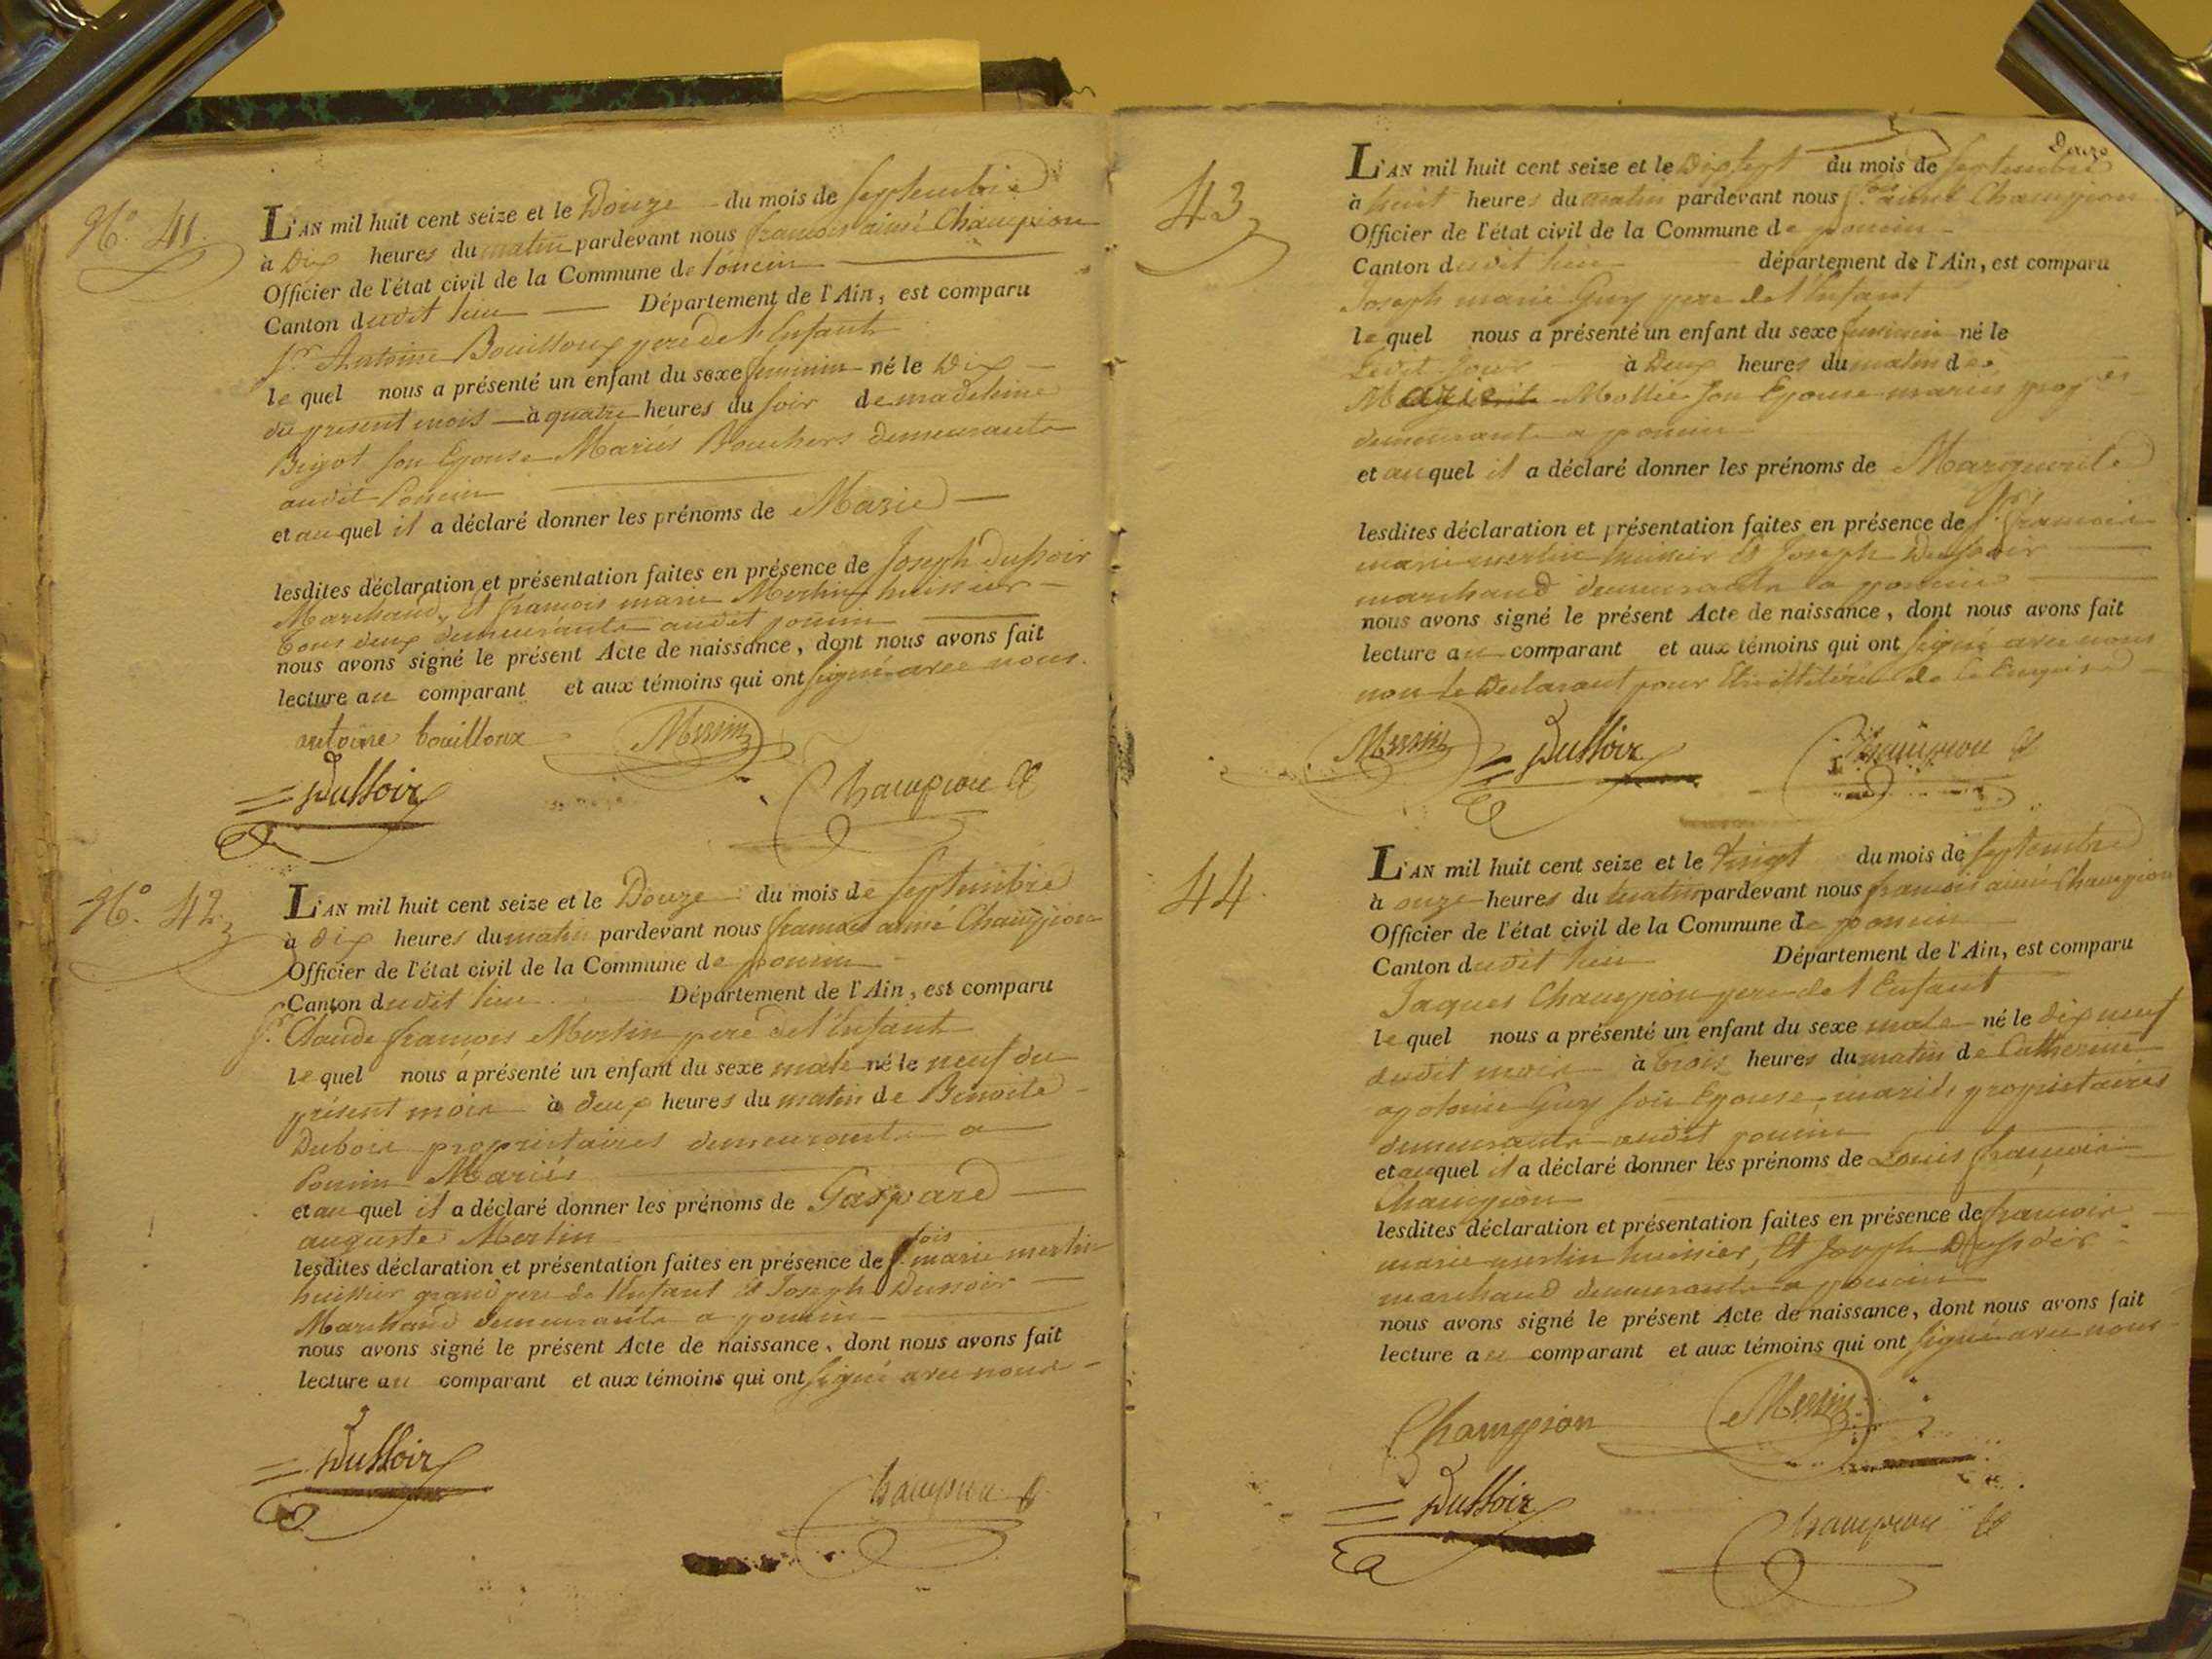 N.° 41.
L'AN mil huit cent seize et le Douze du mois de septembre
à Dix heures du matin pardevant nous françois aimé Champion
Officier de l'état civil de la Commune de Poncin
Canton dudit lieu Département de l'Ain, est comparu
Sr Antoine Bouilloux pere de l'Enfant
le quel nous a présenté un enfant du sexe feminin né le Dix
du present mois à quatre heures du soir de madeleine
Bigot son Epouse Mariés Bouchers demeurants
audit Poncin
et au quel il a déclaré donner les prénoms de Marie
lesdites déclaration et présentation faites en présence de Joseph dussoir
Marchand, et françois marie Merlin huissier
tous deux demeurants audit poncin
nous avons signé le présent Acte de naissance, dont nous avons fait
lecture au comparant et aux témoins qui ont signé avec nous.
antoine bouilloux Merlin
Dussoir Champion
N.° 42
L'AN mil huit cent seize et le Douze du mois de septembre
à dix heures du matin pardevant nous françois aimé Champion
Officier de l'état civil de la Commune de poncin
Canton dudit lieu Département de l'Ain, est comparu
Sr. Claude françois Merlin pere de l'Enfant
le quel nous a présenté un enfant du sexe male né le neuf du
présent mois à deux heures du matin de Benoite
Dubois propriétaires demeurants a
Poncin Mariés
et au quel il a déclaré donner les prénoms de Gaspard
auguste Merlin
lesdites déclaration et présentation faites en présence de f.ois marie merlin
huissier grand pere de l'Enfant Et Joseph Dussoir
Marchand demeurants a poncin
nous avons signé le présent Acte de naissance, dont nous avons fait
lecture au comparant et aux témoins qui ont signé avec nous
Dussoir Champion
Douze
43
L'AN mil huit cent seize et le Dix sept du mois de septembre
à huit heures du matin pardevant nous f.ois aimé Champion
Officier de l'état civil de la Commune de poncin
Canton dudit lieu département de l'Ain, est comparu
Joseph marie Guy pere de l'Enfant
le quel nous a présenté un enfant du sexe feminin né le
Ledit Jour à Deux heures du matin de
Marie Mollie son Epouse mariés prop.res
demeurants a poncin
et au quel il a déclaré donner les prénoms de Marguerite
lesdites déclaration et présentation faites en présence de Sr. françois
marie merlin huissier Et Joseph Dussoir
marchand demeurants a poncin
nous avons signé le présent Acte de naissance, dont nous avons fait
lecture au comparant et aux témoins qui ont signé avec nous
non le Déclarant pour Etre illitéré de ce Enquis
Merlin Dussoir Champion
44
L'AN mil huit cent seize et le Vingt du mois de septembre
à onze heures du matin pardevant nous françois aimé Champion
Officier de l'état civil de la Commune de poncin
Canton dudit lieu Département de l'Ain, est comparu
Jaques Champion pere de l'Enfant
le quel nous a présenté un enfant du sexe male né le dix neuf
dudit mois à trois heures du matin de Catherine
apolonie Guy son Epouse, mariés propriétaires
demeurants audit poncin
et au quel il a déclaré donner les prénoms de Louis françois
Champion
lesdites déclaration et présentation faites en présence de françois
marie merlin huissier, Et Joseph Dussoir
marchand demeurants a poncin
nous avons signé le présent Acte de naissance, dont nous avons fait
lecture au comparant et aux témoins qui ont signé avec nous
Champion Merlin
Dussoir Champion